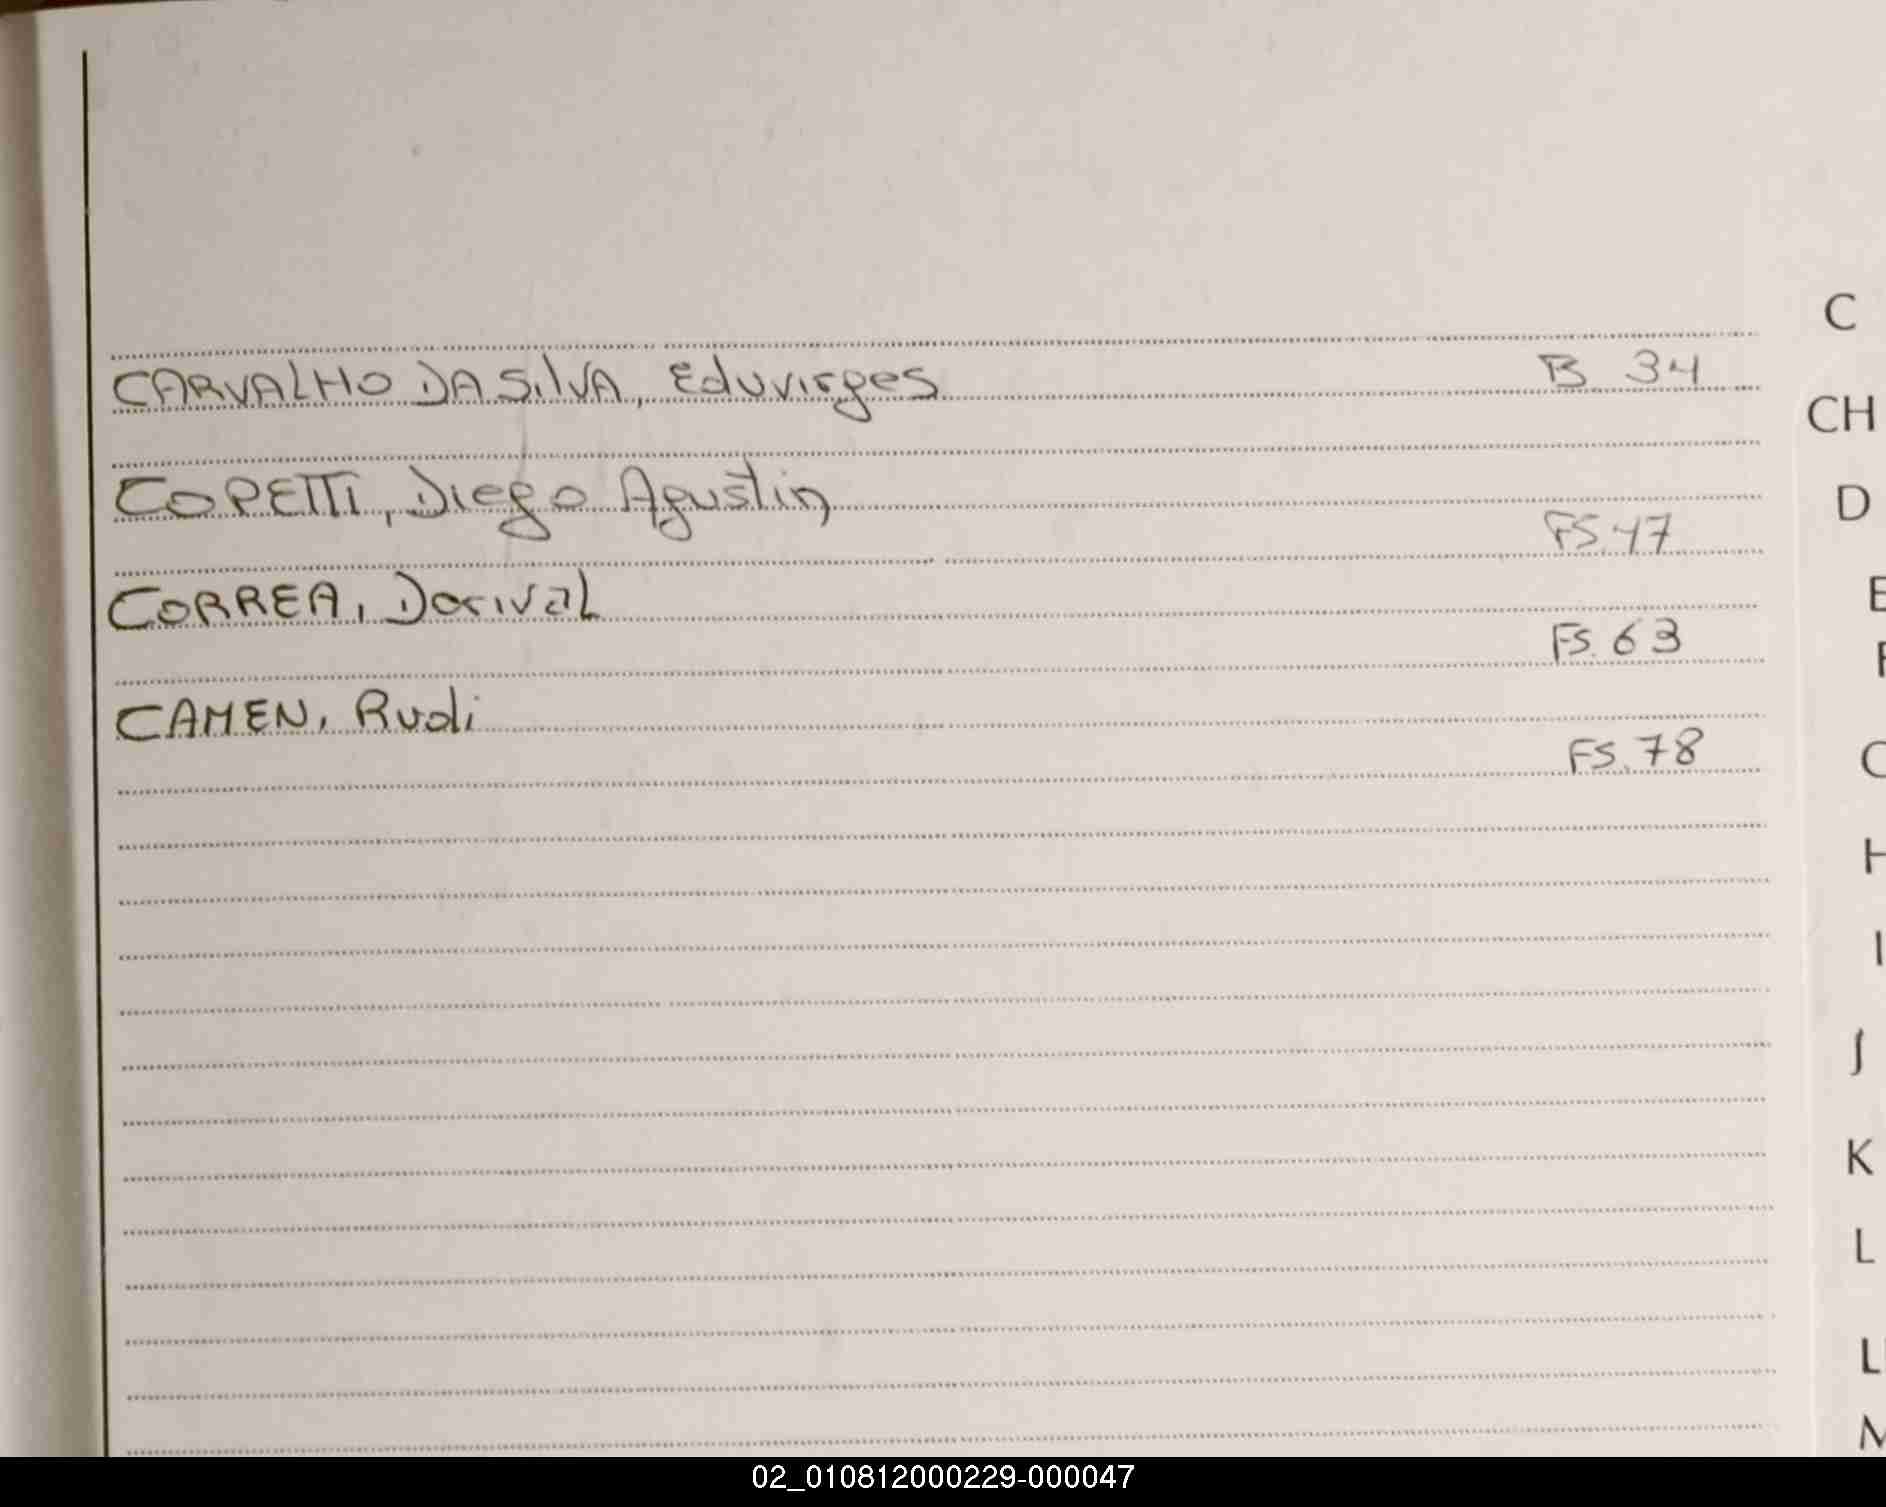 C
CARVALHO DA SilVA, Eduvirges B 34
CH
COPETTi, Diego Agustin
D
FS.47
CORREA, Dorival
E
FS. 63
F
CAMEN, Rudi
FS. 78
H
I
J
K
L
M
02_010812000229-000047